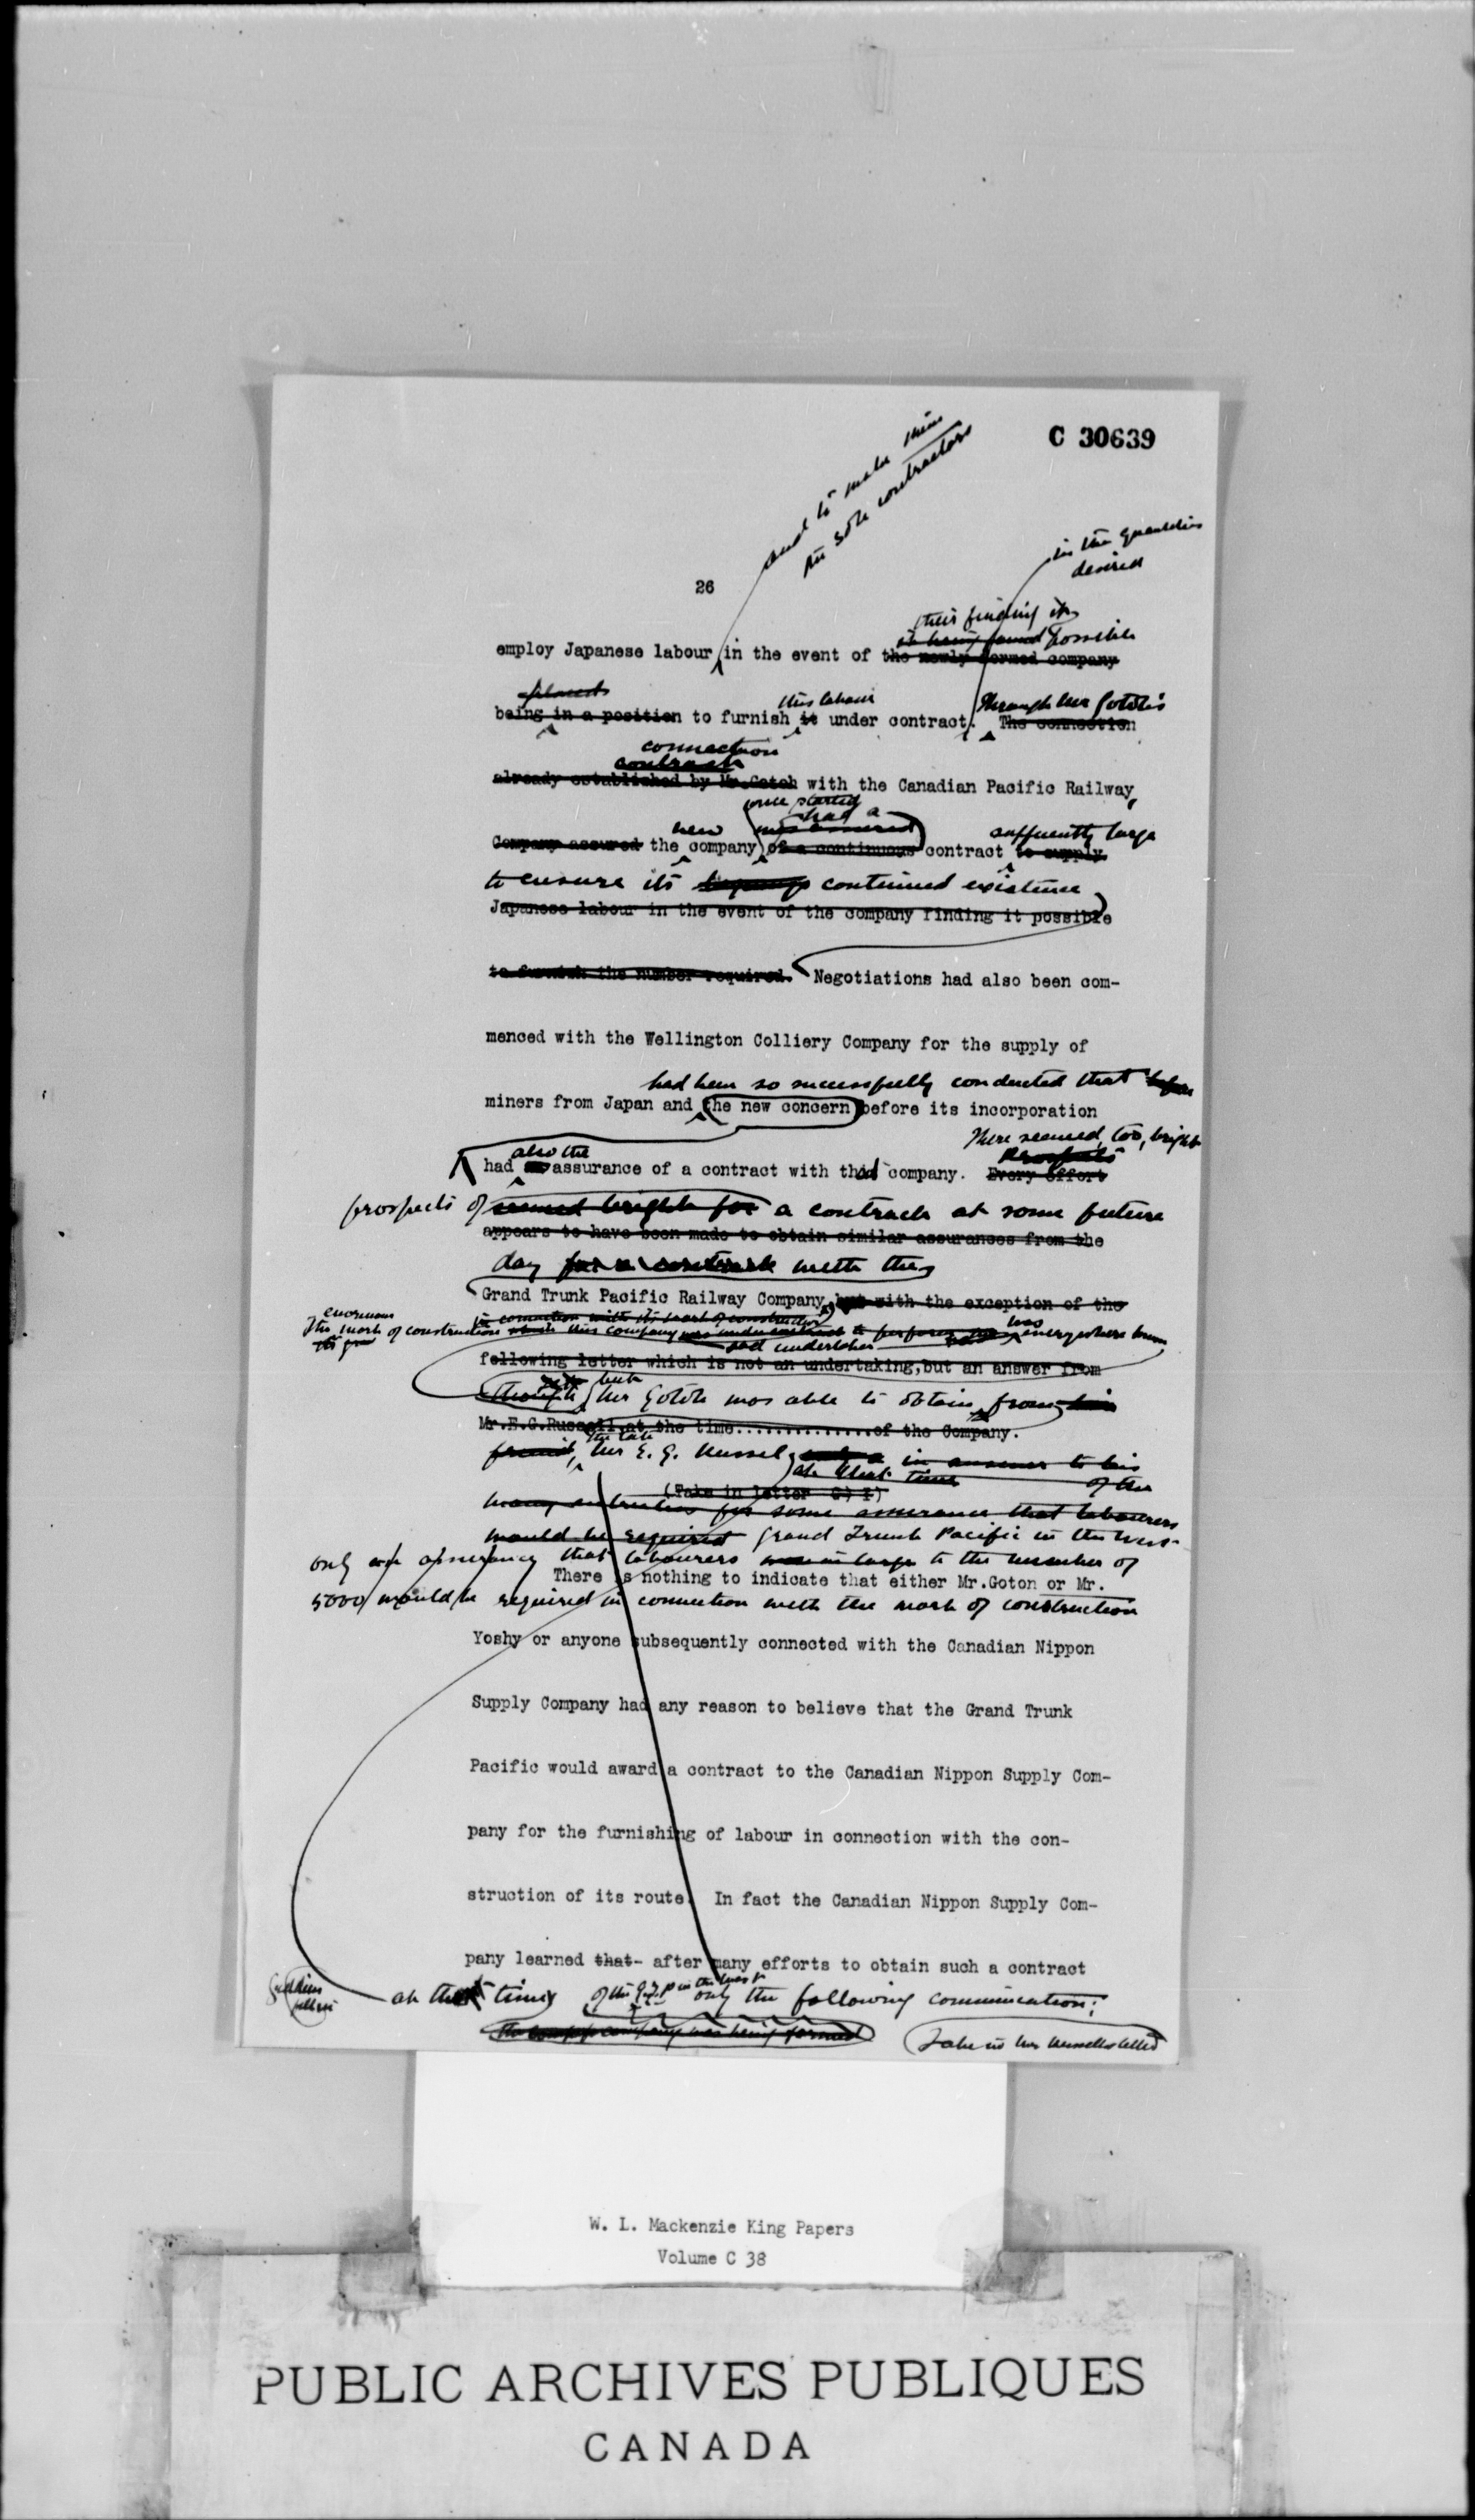 C 30639
and to make them
the sole contractors
in the quantities
desired
26
their finding it
it being found possible
employ Japanese labour in the event of the newly formed company
this labour
through Mr Gotoh's
being in a position to furnish it under contract. The connection
connection
contract
already established by Mr.Gotoh with the Canadian Pacific Railway,
once started
had a
new
was assured
sufficiently large
Company assured the company of a continuous contract to supply
to ensure its continued existence
Japanese labour in the event of the company finding it possible
to furnish the number required. Negotiations had also been com-
menced with the Wellington Colliery Company for the supply of
had been so successfully conducted that before
miners from Japan and the new concern before its incorporation
There seemed, too, bright
also the
prospects
had assurance of a contract with that company. Every effort
prospects of seemed bright for a contract at some future
appears to have been made to obtain similar assurances from the
day for a contract with the
Grand Trunk Pacific Railway Company, but with the exception of the
in connection with its work of construction
enormous
The work of construction which this company was under contract to perform was everywhere known
had undertaken
following letter which is not an undertaking,but an answer from
but
though Mr Gotoh was able to obtain from him
Mr.E.G.Russell at the time..............of the Company.
the late
Mr E. G. Russel, only a in answer to his
at that time of the
(Take in letter G) I)
many for some assurance that labourers
would be required Grand Trunk Pacific in the West
only an assurance that labourers were in large to the number of
There is nothing to indicate that either Mr.Goton or Mr.
5000 would be required in connection with the work of construction
Yoshy or anyone subsequently connected with the Canadian Nippon
Supply Company had any reason to believe that the Grand Trunk
Pacific would award a contract to the Canadian Nippon Supply Com-
pany for the furnishing of labour in connection with the con-
struction of its route. In fact the Canadian Nippon Supply Com-
pany learned that- after many efforts to obtain such a contract
at that time of the G.T.P in the West only the following communication:
the company was being formed
Take in Mr Russells letter
W. L. Mackenzie King Papers
Volume C 38
PUBLIC ARCHIVES PUBLIQUES
CANADA